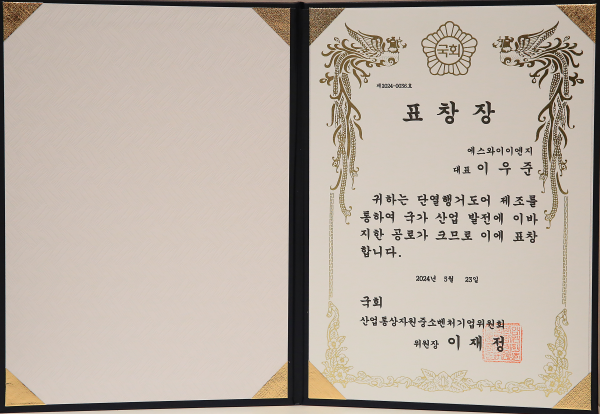 국회
제2024-0036호
표창장
에스와이이엔지
대표 이우준
귀하는 단열행거도어 제조를
통하여 국가 산업 발전에 이바
지한 공로가 크므로 이에 표창
합니다.
2024년 5월 23일
국회
산업통상자원중소벤처기업위원회
위원장 이재정